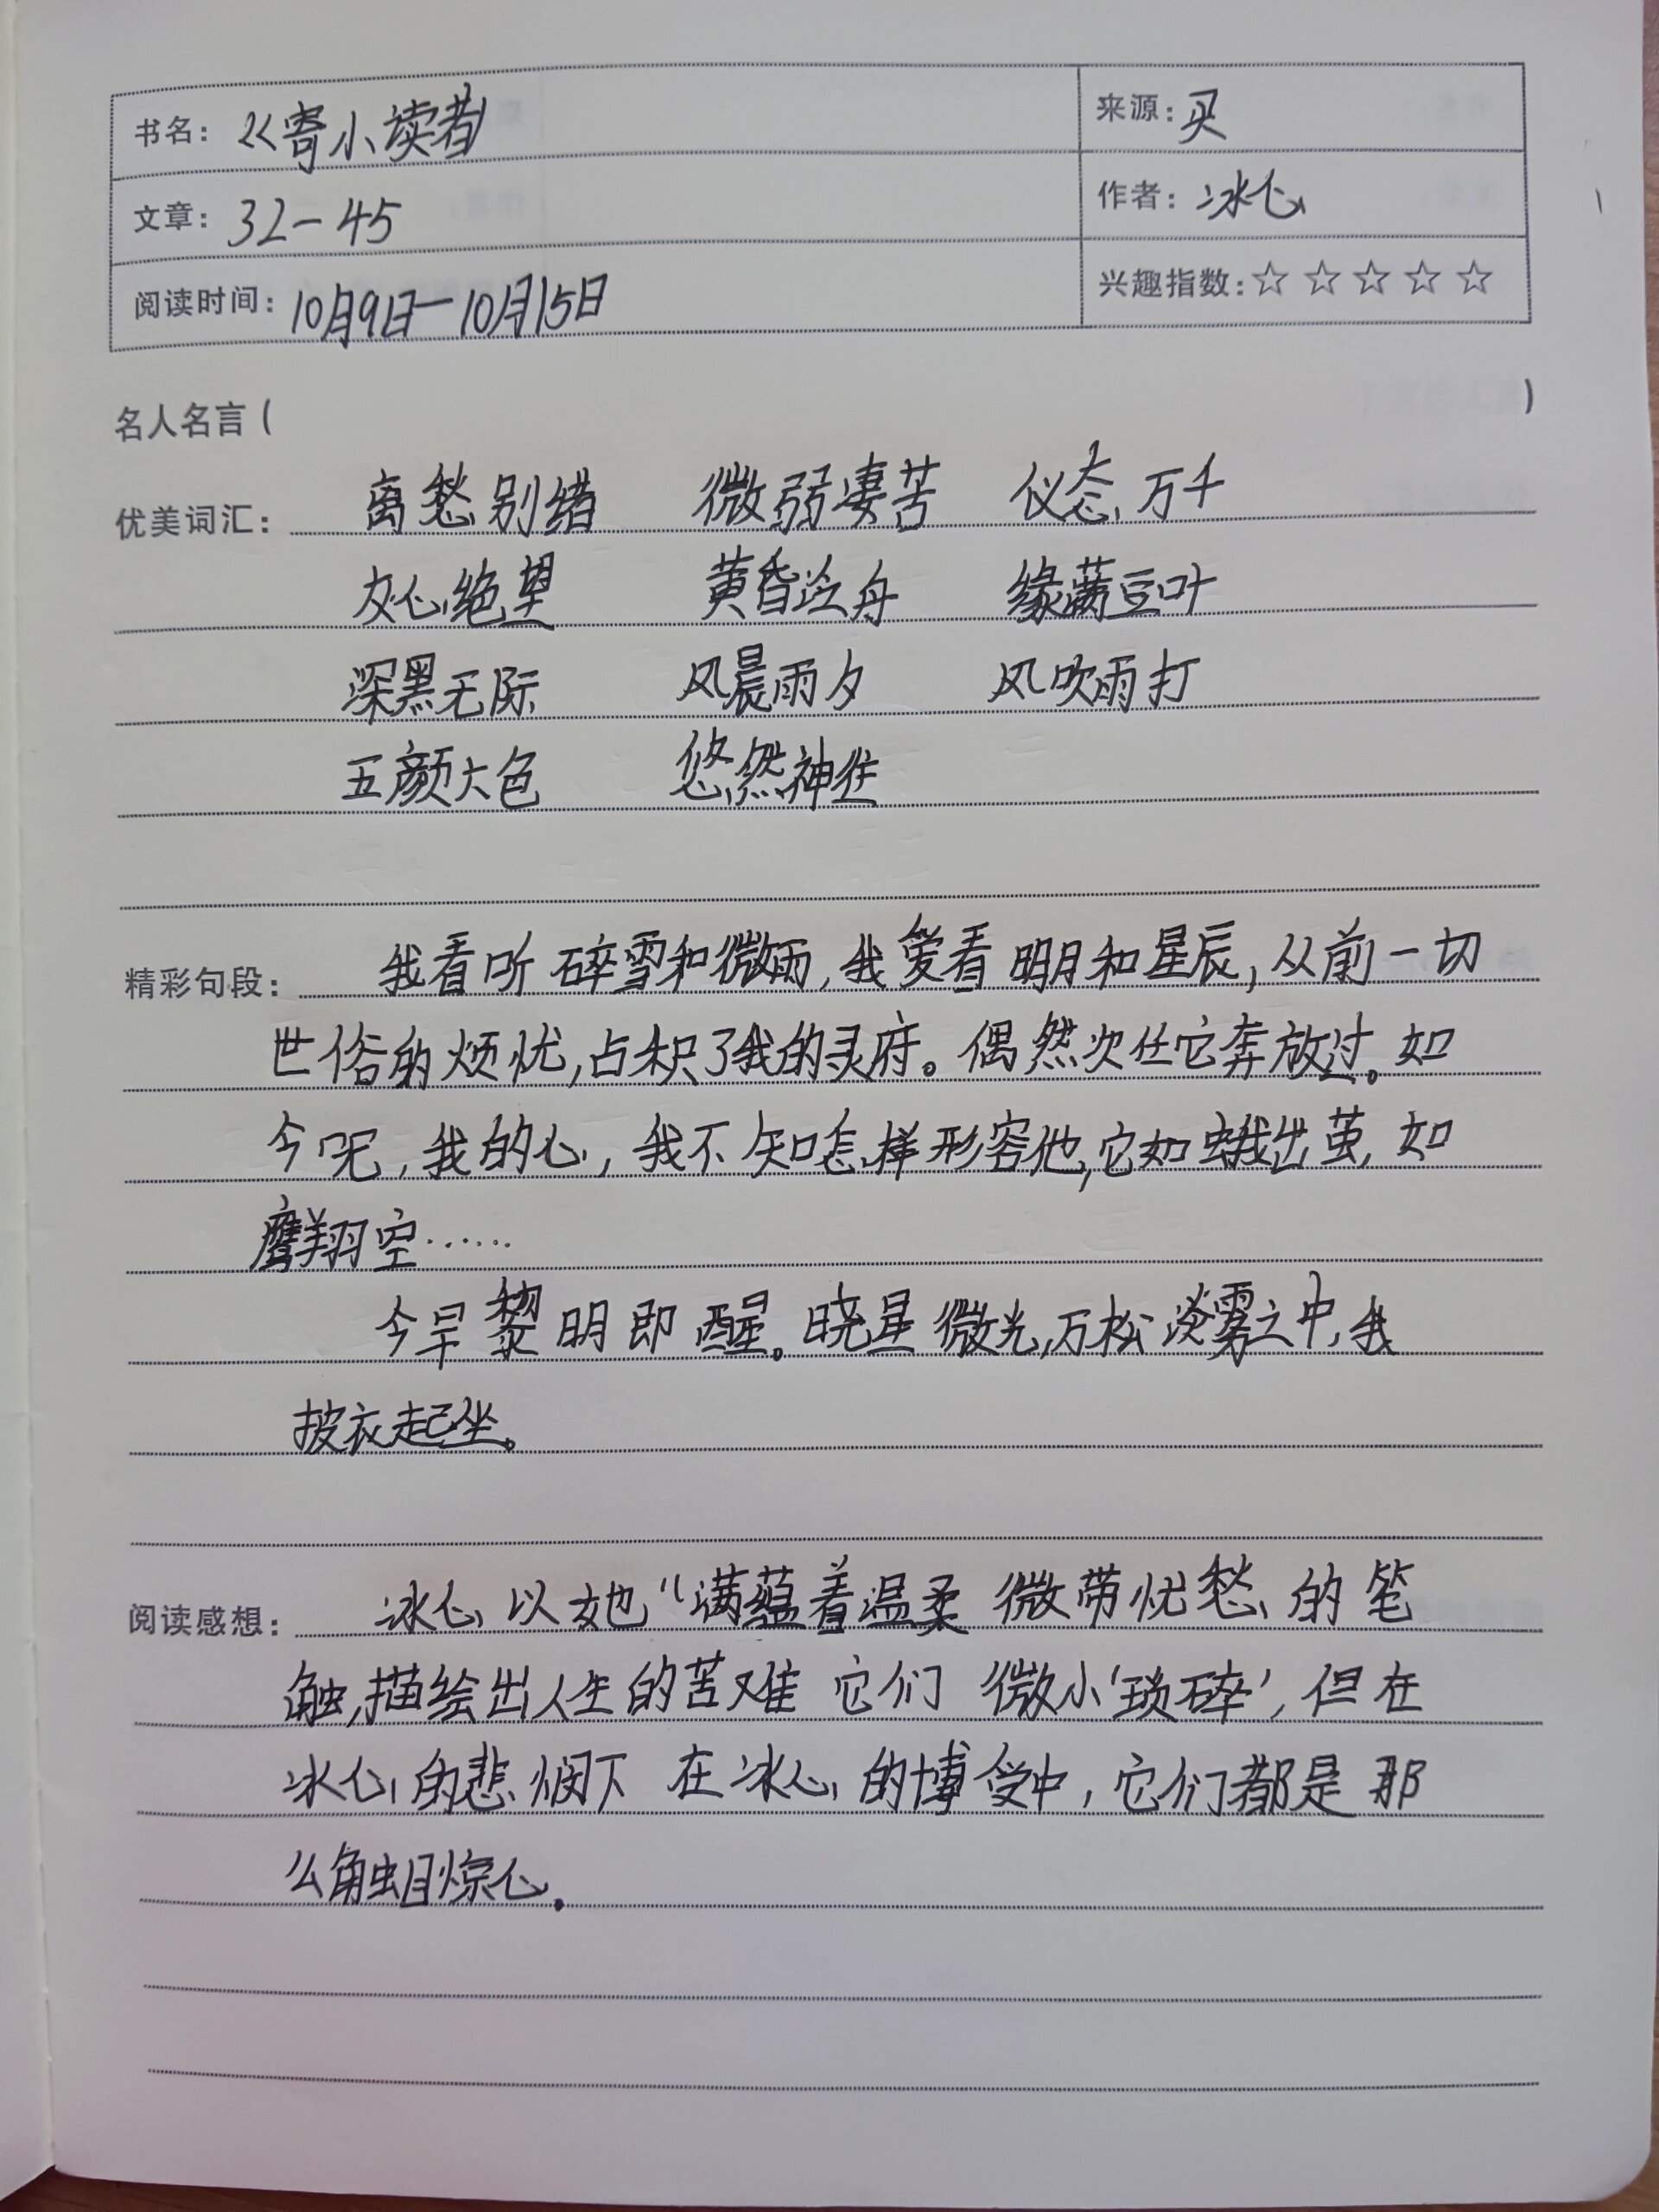 书名：《寄小读者》 来源：买
文章：32-45 作者：冰心
阅读时间：10月9日-10月15日 兴趣指数：☆☆☆☆☆
名人名言（ ）
优美词汇： 离愁别绪 微弱凄苦 仪态万千
灰心绝望 黄昏泛舟 缘藕豆叶
深黑无际 风晨雨夕 风吹雨打
五颜六色 悠然神往
精彩句段： 我看听碎雪和微雨，我爱看明月和星辰，从前一切
世俗的烦忧，占积了我的灵府。偶然次任它奔放过。如
今呢，我的心，我不知怎样形容他，它如蛾出茧，如
鹰翔空……
今早黎明即醒。晓星微光，万松淡雾之中，我
披衣起坐。
阅读感想： 冰心以她“满蕴着温柔 微带忧愁的笔
触，描绘出人生的苦难 它们 微小‘琐碎’，但在
冰心的悲悯下 在冰心的博爱中，它们都是那
么触目惊心。